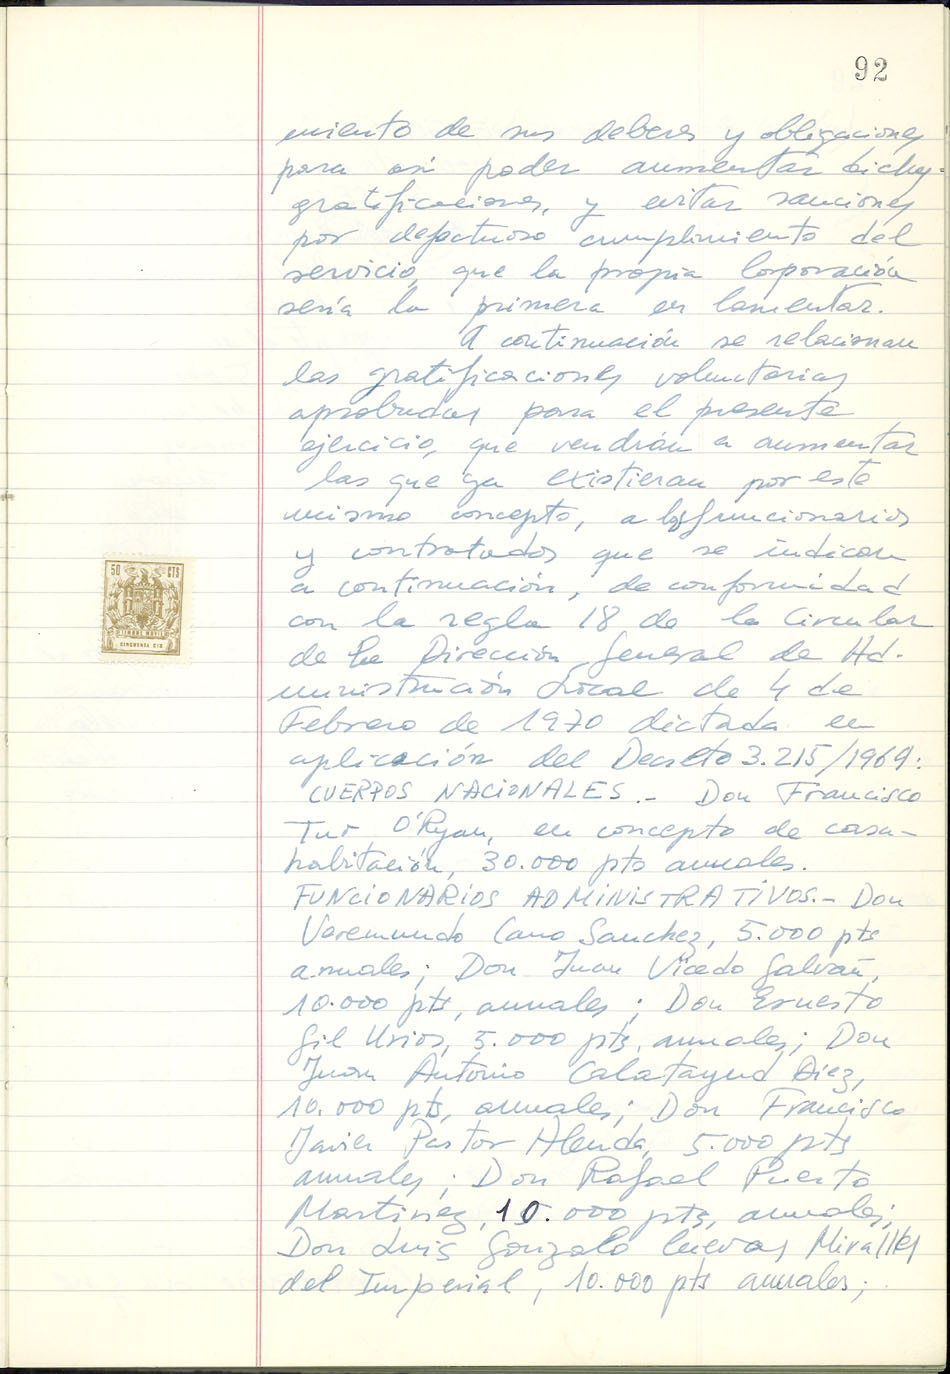 92
miento de sus deberes y obligaciones
para así poder aumentar dichas
gratificaciones, y evitar sanciones
por defectuoso cumplimiento del
servicio, que la propia Corporación
sería la primera en lamentar.
A continuación se relacionan
las gratificaciones voluntarias
aprobadas para el presente
ejercicio, que vendrán a aumentar
las que ya existieran por este
mismo concepto, a los funcionarios
y contratados que se indican
a continuación, de conformidad
con la regla 18 de la Circular
de la Dirección General de Ad-
ministración Local de 4 de
Febrero de 1970 dictada en
aplicación del Decreto 3.215/1969:
CUERPOS NACIONALES.- Don Francisco
Tur O'Ryan, en concepto de casa-
habitación, 30.000 pts anuales.
FUNCIONARIOS ADMINISTRATIVOS.- Don
Veremundo Cano Sanchez, 5.000 pts
anuales; Don Juan Vicedo Galvañ,
10.000 pts, anuales; Don Ernesto
Gil Urios, 5.000 pts, anuales; Don
Juan Antonio Calatayud Diez,
10.000 pts, anuales; Don Francisco
Javier Pastor Alenda, 5.000 pts
anuales; Don Rafael Puerto
Martinez, 10.000 pts, anuales;
Don Luis Gonzalo Cuevas Miralles
del Imperial, 10.000 pts anuales;
50 CTS
TIMBRE MOVIL
CINCUENTA CTS